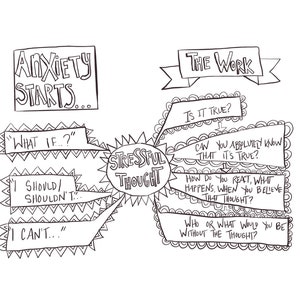 ANXIETY
STARTS...
THE WORK
"WHAT IF...?"
I SHOULD/
SHOULDN'T...
I CAN'T..."
STRESSFUL
THOUGHT
IS IT TRUE?
CAN YOU ABSOLUTELY KNOW
THAT IT'S TRUE?
HOW DO YOU REACT, WHAT
HAPPENS, WHEN YOU BELIEVE
THAT THOUGHT?
WHO OR WHAT WOULD YOU BE
WITHOUT THE THOUGHT?